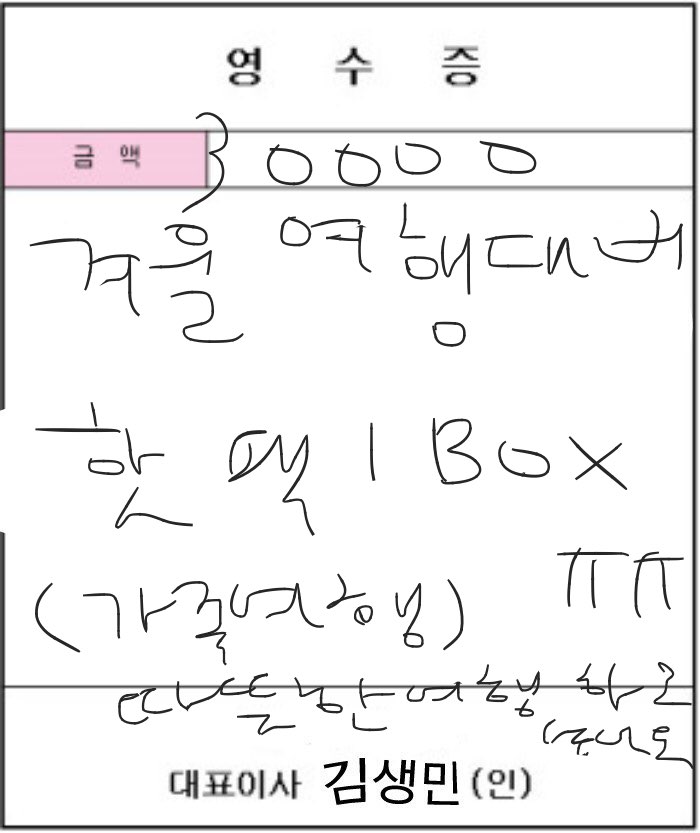 영 수 증
금 액 30000
겨울 여행대비
핫 팩 1 BOX
(가족여행) ㅠㅠ
따뜻한여행
대표이사 김생민 (인)